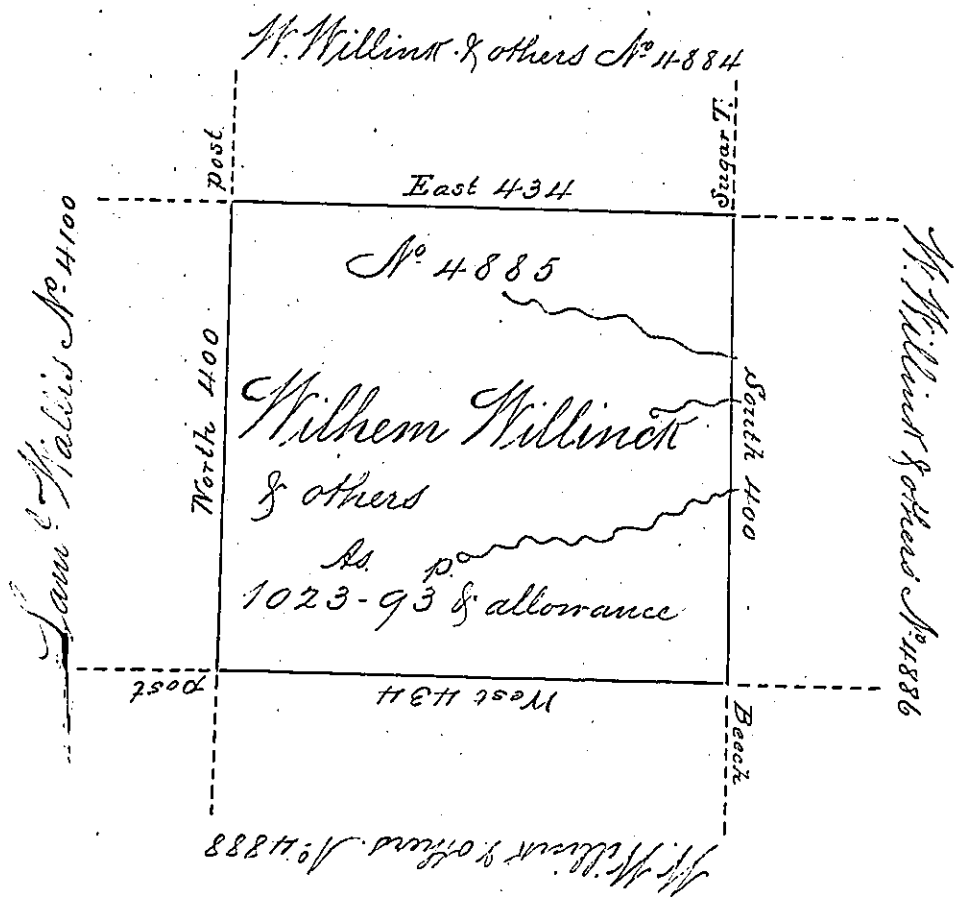 W. Willink & others No 4884
post
Sugar T.
East 434
Saml Wallis No 4100
North 400
No 4885
Wilhem Willinck
& others
As. p.
1023-93 & allowance
South 400
W. Willink & others No 4886
post
West 434
Beech
W. Willink & others. No 4888